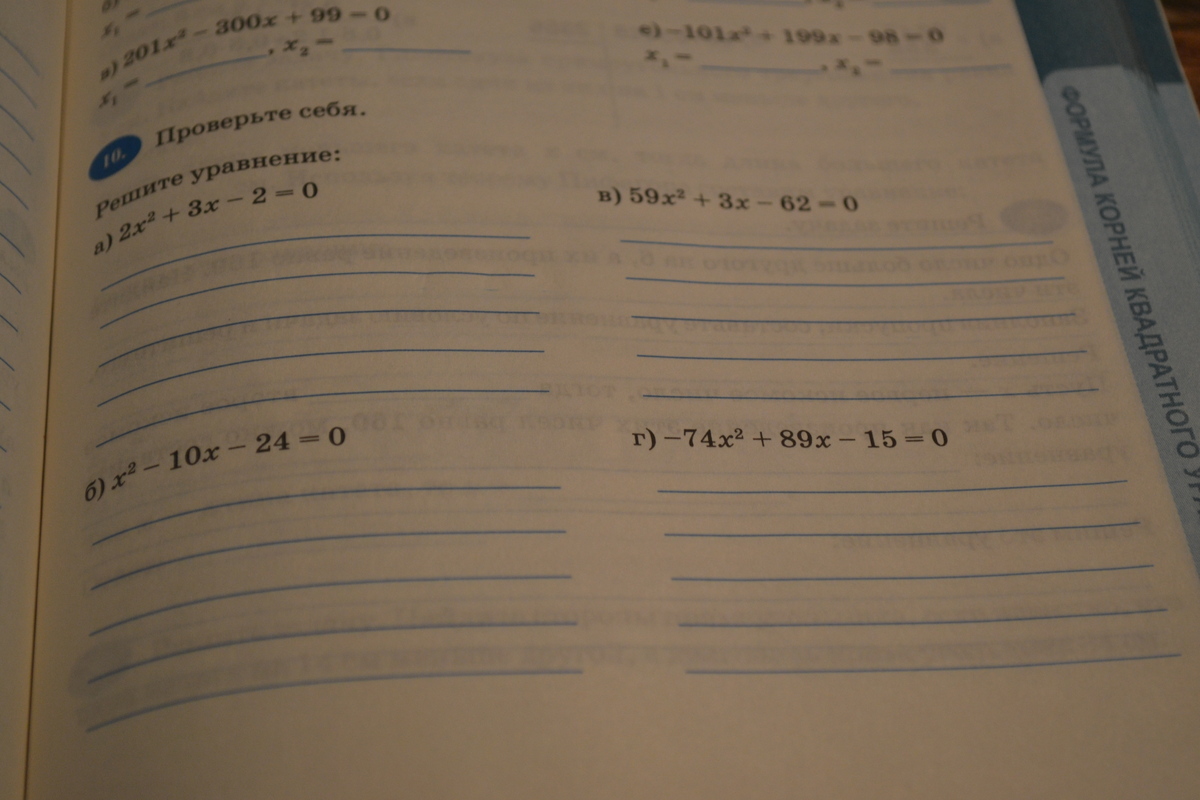 в) 201x² − 300x + 99 = 0
x₁ = ____________, x₂ = ____________
е) −101x² + 199x − 98 = 0
x₁ = ____________, x₂ = ____________
10. Проверьте себя.
Решите уравнение:
а) 2x² + 3x − 2 = 0
б) x² − 10x − 24 = 0
в) 59x² + 3x − 62 = 0
г) −74x² + 89x − 15 = 0
ФОРМУЛА КОРНЕЙ КВАДРАТНОГО